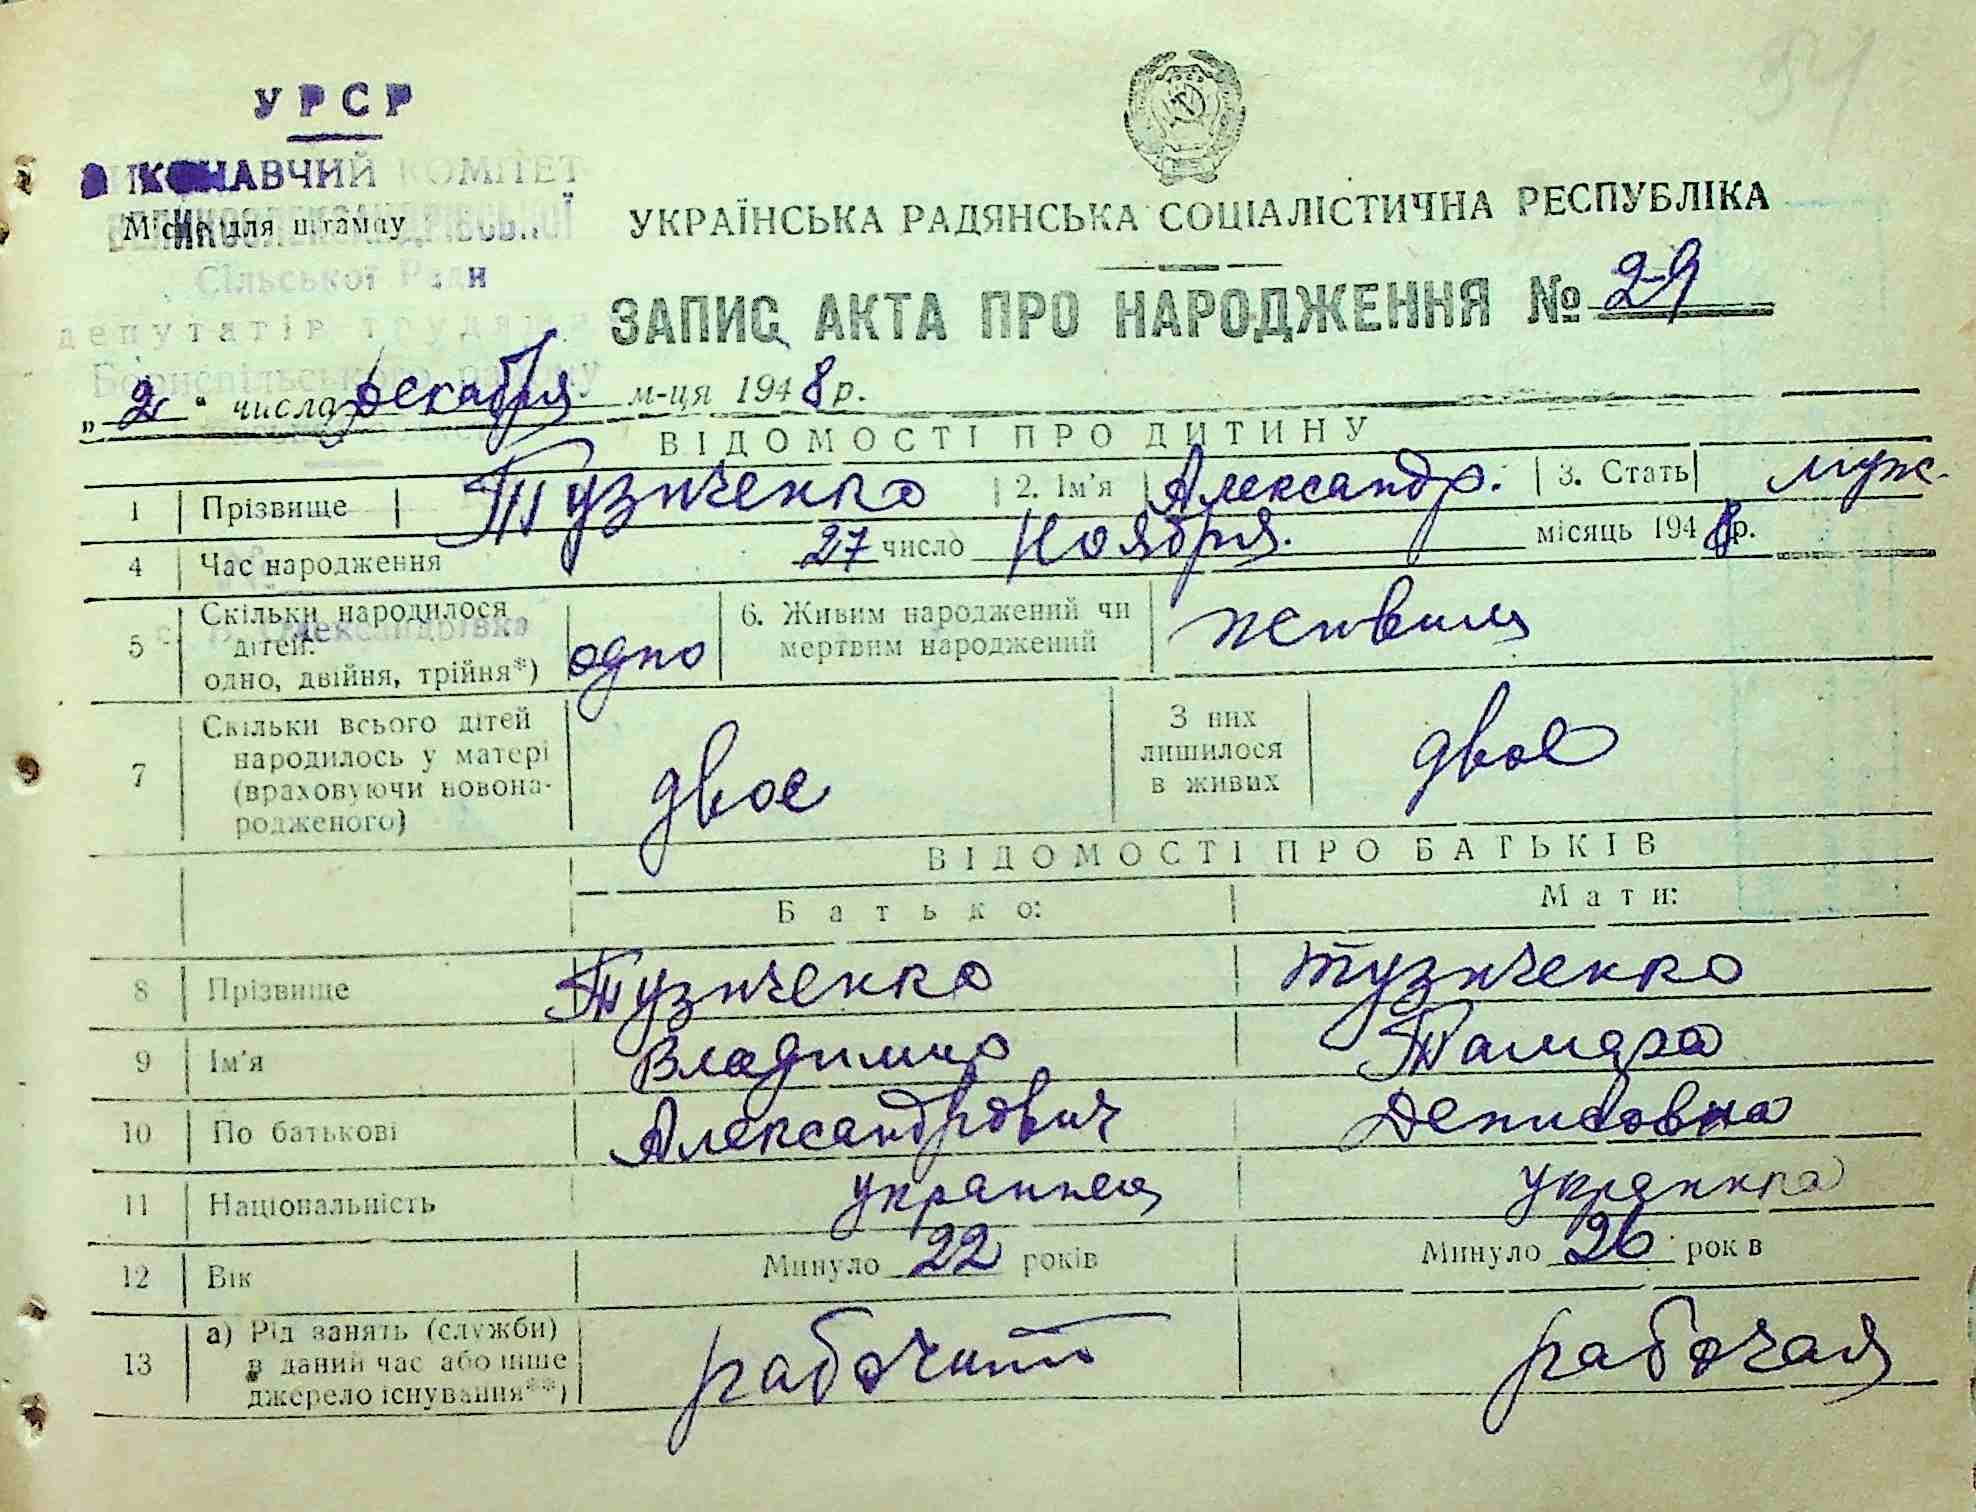 УРСР
КОНАВЧИЙ КОМІТЕТ
Місце для штампу
Сільської Ради
депутатів трудящих
Бориспільського району
УКРАЇНСЬКА РАДЯНСЬКА СОЦІАЛІСТИЧНА РЕСПУБЛІКА
ЗАПИС АКТА ПРО НАРОДЖЕННЯ № 29
„2" числа декабря м-ця 1948 р.
ВІДОМОСТІ ПРО ДИТИНУ
1 Прізвище Тузиченко 2. Ім'я Александр. 3. Стать муж.
4 Час народження 27 число Ноября. місяць 1948 р.
5 Скільки народилося дітей: одно, двійня, трійня*) одно 6. Живим народжений чи мертвим народжений
7 Скільки всього дітей народилось у матері (враховуючи новонародженого) двое З них лишилося в живих двое
ВІДОМОСТІ ПРО БАТЬКІВ
Батько: Мати:
8 Прізвище Тузиченко Тузиченко
9 Ім'я Владимир Тамара
10 По батькові Александрович Денисовна
11 Національність украинец украинка
12 Вік Минуло 22 років Минуло 26 рок в
13 а) Рід занять (служби) в даний час або інше джерело існування**) рабочий рабочая